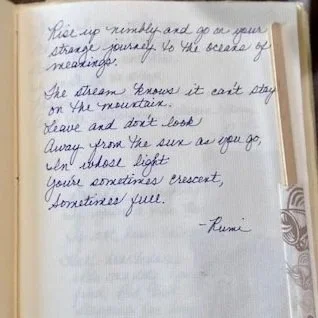 Rise up nimbly and go on your
strange journey to the oceans of
meanings.
The stream knows it can't stay
on the mountain.
Leave and don't look
Away from the sun as you go,
In whose light
You're sometimes crescent,
Sometimes full.
-Rumi